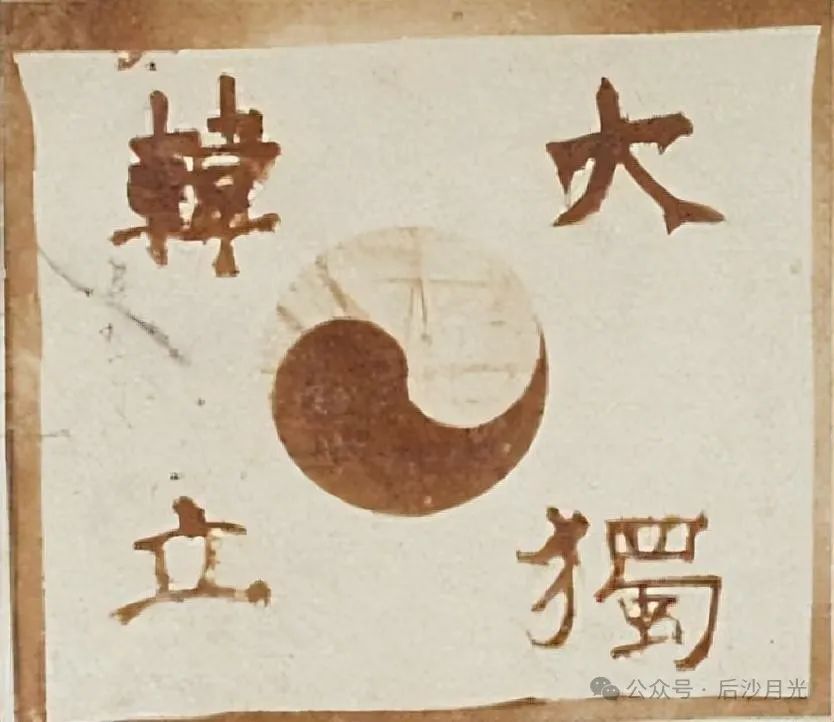 大韓
獨立
公众号 · 后沙月光